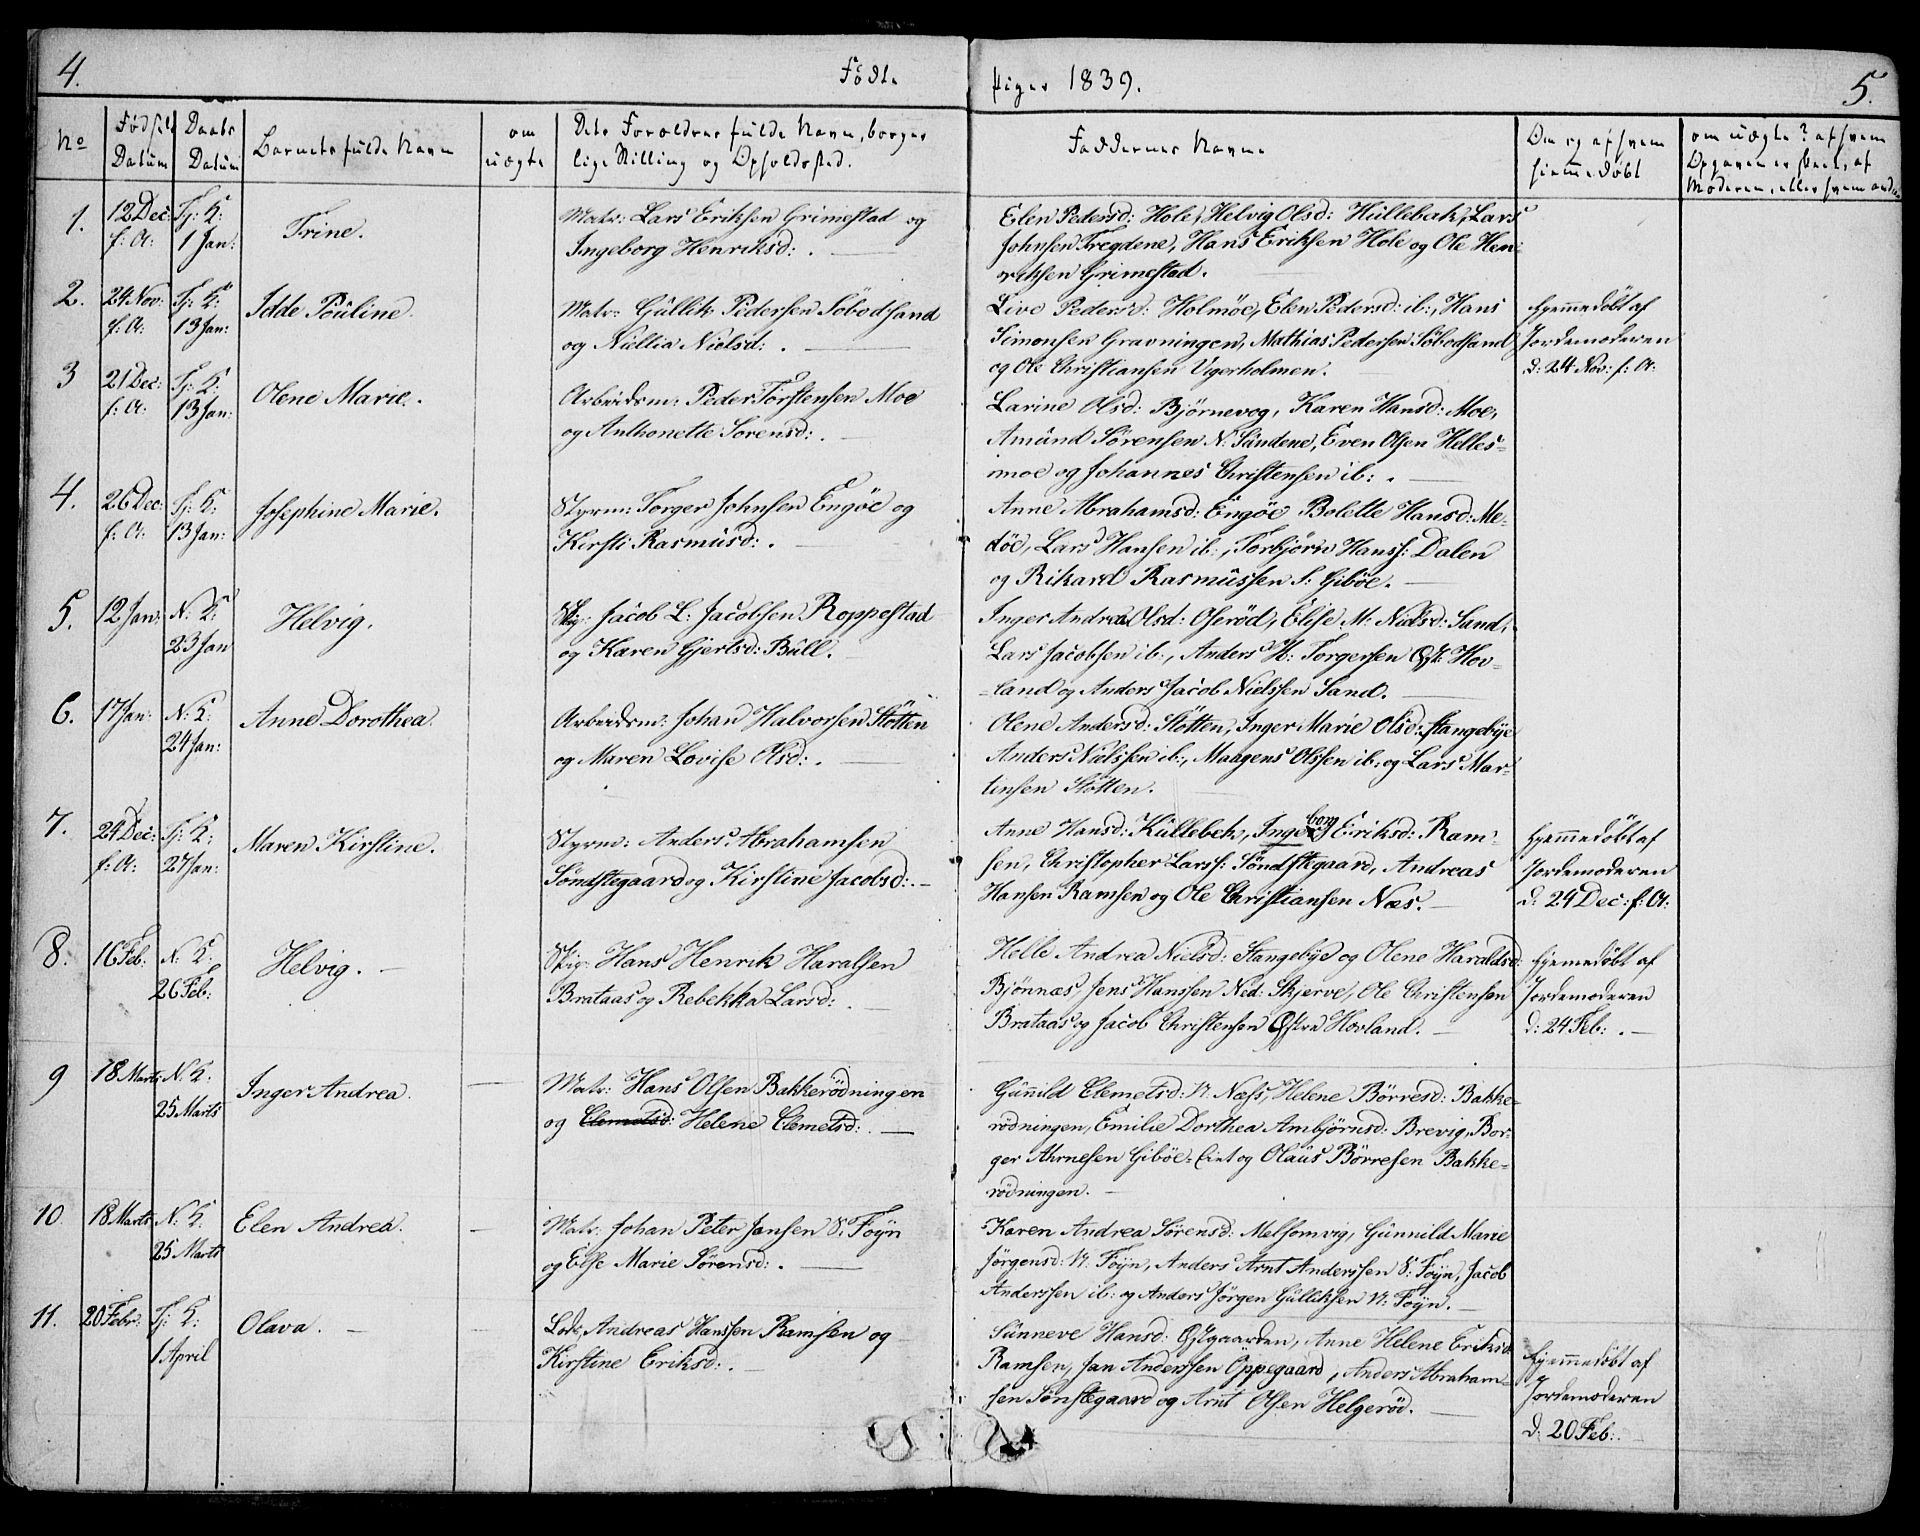 4. Födte Piger 1839. 5.
No Fødsels Datum Daabs Datum Barnets fulde Navn om uægte Dets Forældres fulde Navn, borgerlige Stilling og Opholdssted. Faddernes Navne Om og af hvem hjemmedøbt om uægte? af hvem Opgaven er skeet, af Moderen, eller hvem anden
1. 12 Dec: f: A: Tj: K: 1 Jan: Trine. Matr: Lars Eriksen Grimestad og
Ingeborg Henriksd: .
Elen Pedersd: Hole, Helvig Olsd: Hüllebak, Lars
Johnsen Tregdene, Hans Eriksen Hole og Ole Hen-
riksen Grimestad.
2. 24 Nov: f: A: Tj: K: 13 Jan: Idde Pouline. Matr: Güllik Pedersen Söbodsand
og Nillia Nielsd: .
Live Pedersd: Holmöe, Elen Pedersd: ib:, Hans
Simonsen Gravningen, Mathias Pedersen Söbodsand
og Ole Christiansen Vigerholmen.
Hjemmedöbt af
Jordemoderen
d: 24 Nov: f: A:
3 21 Dec: f: A: Tj: K: 13 Jan: Olene Marie. Arbeidsm: Peder Torstensen Moe
og Anthonette Sorensd: .
Larine Olsd: Björnevog, Karen Hansd: Moe,
Amünd Sörensen N: Sündene, Even Olsen Helles-
moe og Johannes Christensen ib: .
4. 26 Dec: f: A: Tj: K: 13 Jan: Josephine Marie. Styrm: Torger Johnsen Engöe og
Kirsti Rasmüsd: .
Anne Abrahamsd: Engöe Bolette Hansd: Me-
döe, Lars Hansen ib:, Torbjörn Hanss: Dalen
og Rikard Rasmüssen S: Giböe.
5. 12 Jan: N: K: 23 Jan Helvig. Skip: Jacob L: Jacobsen Roppestad
og Karen Gjertsd: Büll.
Inger Andrea Olsd: Oseröd, Elise M: Nielsd: Sand,
Lars Jacobsen ib:, Anders H: Torgersen Øst: Hov-
land og Anders Jacob Nielssen Sand.
6. 17 Jan: N: K: 24 Jan: Anne Dorothea. Arbeidsm: Johan Halvorsen Stötten
og Maren Lovise Olsd: .
Olene Andersd: Stötten, Inger Marie Olsd: Stangebÿe
Anders Nielssen ib:, Maagens Olssen ib: og Lars Mar-
tinsen Stötten.
7. 24 Dec: f: A: Tj: K: 27 Jan: Maren Kirstine. Styrm: Anders Abrahamsen
Söndstegaard og Kirstine Jacobsd: .
Anne Hansd: Küllebek, Ingeborg Eriksd: Ram-
sen, Christopher Larss: Söndstegaard, Andreas
Hansen Ramsen og Ole Christiansen Næs.
Hjemmedöbt af
Jordemoderen
d: 24 Dec: f: A:
8. 16 Feb: N: K: 26 Feb: Helvig. Skip: Hans Henrik Haralsen
Brataas og Rebekka Larsd: .
Helle Andrea Nielsd: Stangebÿe og Olene Haraldsd:
Bjönnæs, Jens Hanssen Ned: Skjerve, Ole Christensen
Brataas og Jacob Christensen Østre Hovland.
Hjemmedöbt af
Jordemoderen
d: 24 Feb: .
9 18 Marts N. K: 25 Marts Inger Andrea. Matr: Hans Olsen Bakkerödningen
og Clemetsd: Helene Clemetsd: .
Günnild Clemetsd: N: Næss, Helene Börresd: Bakke-
rödningen, Emilie Dorthea Ambjörnsd: Brevig, Bor-
ger Ahrnesen Giböe Eiet og Olaüs Börresen Bakke-
rödningen.
10 18 Marts N: K: 25 Marts Elen Andrea. Matr: Johan Peter Jansen S: Foÿn
og Else Marie Sörensd: .
Karen Andrea Sörensd: Melsomvig, Günnild Marie
Jörgensd: N: Foÿn, Anders Arnt Anderssen S: Foÿn, Jacob
Anderssen ib: og Anders Jörgen Gülliksen N: Foÿn.
11. 20 Febr: Tj: K: 1 April Olava. Lods, Andreas Hanssen Ramsen og
Kirstine Eriksd: .
Sünneve Hansd: Østgaarden, Anne Helene Eriksd:
Ramsen, Jan Anderssen Oppegaard, Anders Abraham-
sen Sönstegaard og Arnt Olsen Helgeröd.
Hjemmedöbt af
Jordemoderen
d: 20 Feb: